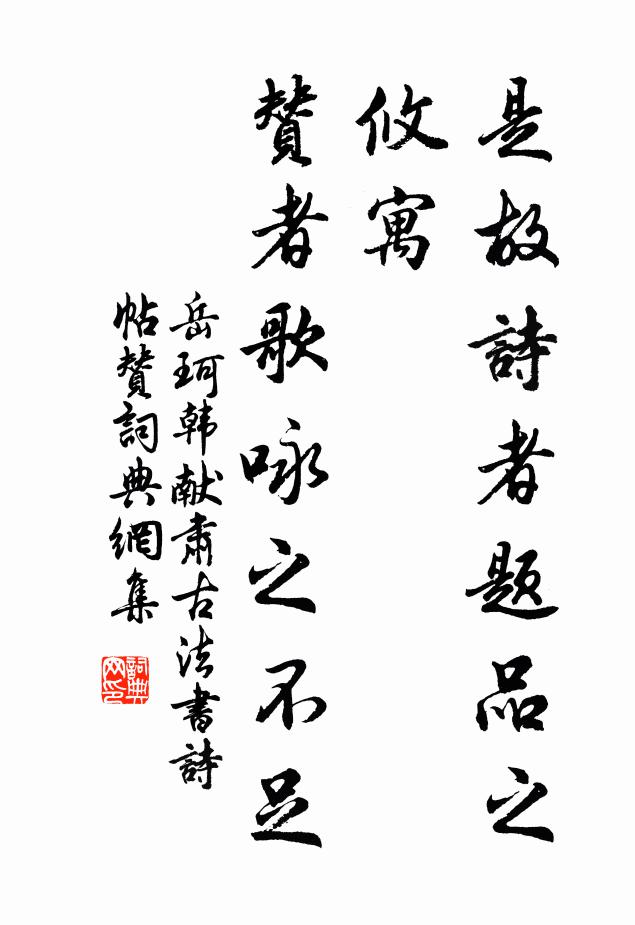 是故詩者題品之
攸寓
贊者歌咏之不足
岳珂韩献肅古法書詩
帖贊詞典網集
詞典
网印